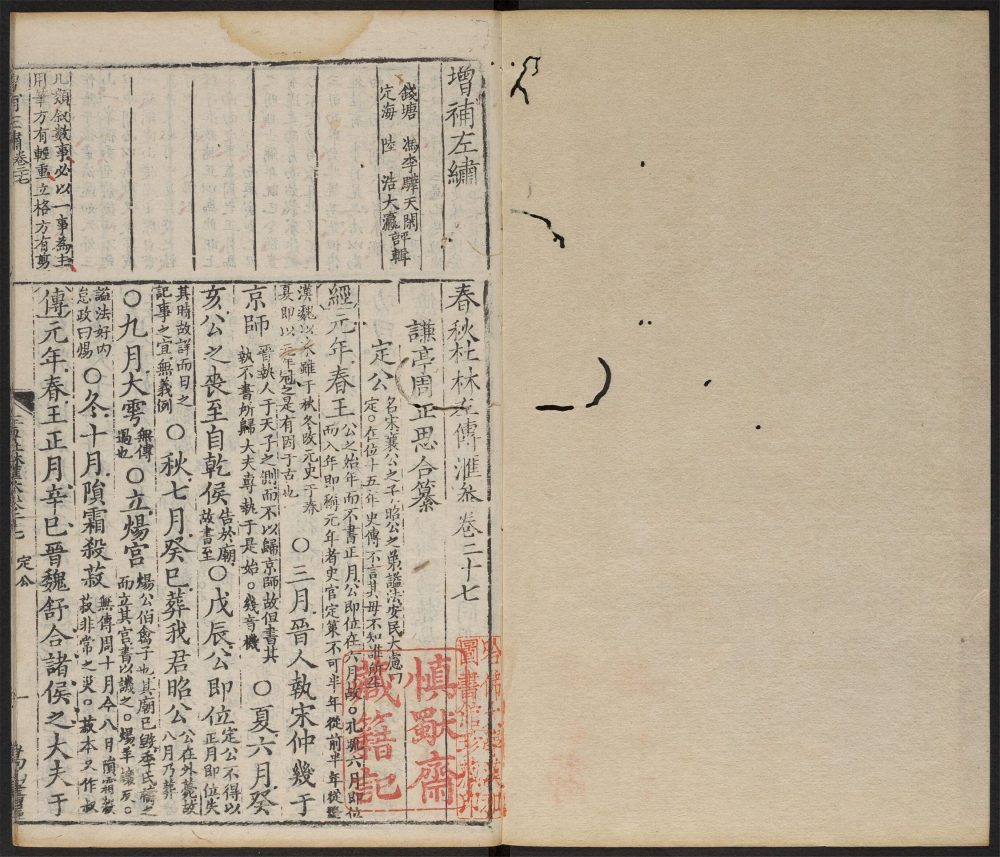 增補左繡
錢塘 馮李驊天閑
定海 陸 浩大瀛 評輯
凡類敘數事必以一事為主
用筆方有輕重立格方有剪
春秋杜林左傳滙叅 卷二十七
謙亭周正思合纂
定公 名宋襄公之子昭公之弟謚法安民大慮曰
定○在位十五年史傳不言其母不知誰所生
經元年春王 公之始年而不書正月公即位在六月故○孔疏六月即位
而入年即稱元年者史官定策不可半年從前半年從後
漢魏以來雖于秋冬改元史于春
夏即以元年冠之是有因于古也 ○三月晉人執宋仲幾于
京師 晉執人于天子之側而不以歸京師故但書其
執不書所歸大夫專執于是始○幾音機 ○夏六月癸
亥公之喪至自乾侯 告於廟
故書至 ○戊辰公即位 定公不得以
正月即位失
其時故詳而日之
記事之宜無義例 ○秋七月癸巳葬我君昭公 公在外薨故
八月乃葬
○九月大雩 無傳
過也 ○立煬宮 煬公伯禽子也其廟已毀季氏禱之
而立其宮書以譏之○煬羊讓反○
謚法好內
怠政曰煬 ○冬十月隕霜殺菽 無傳周十月今八月隕霜殺
菽非常之災○菽本又作叔
傳元年春王正月辛巳晉魏舒合諸侯之大夫于
定公
一
慎獸齋
藏籍記